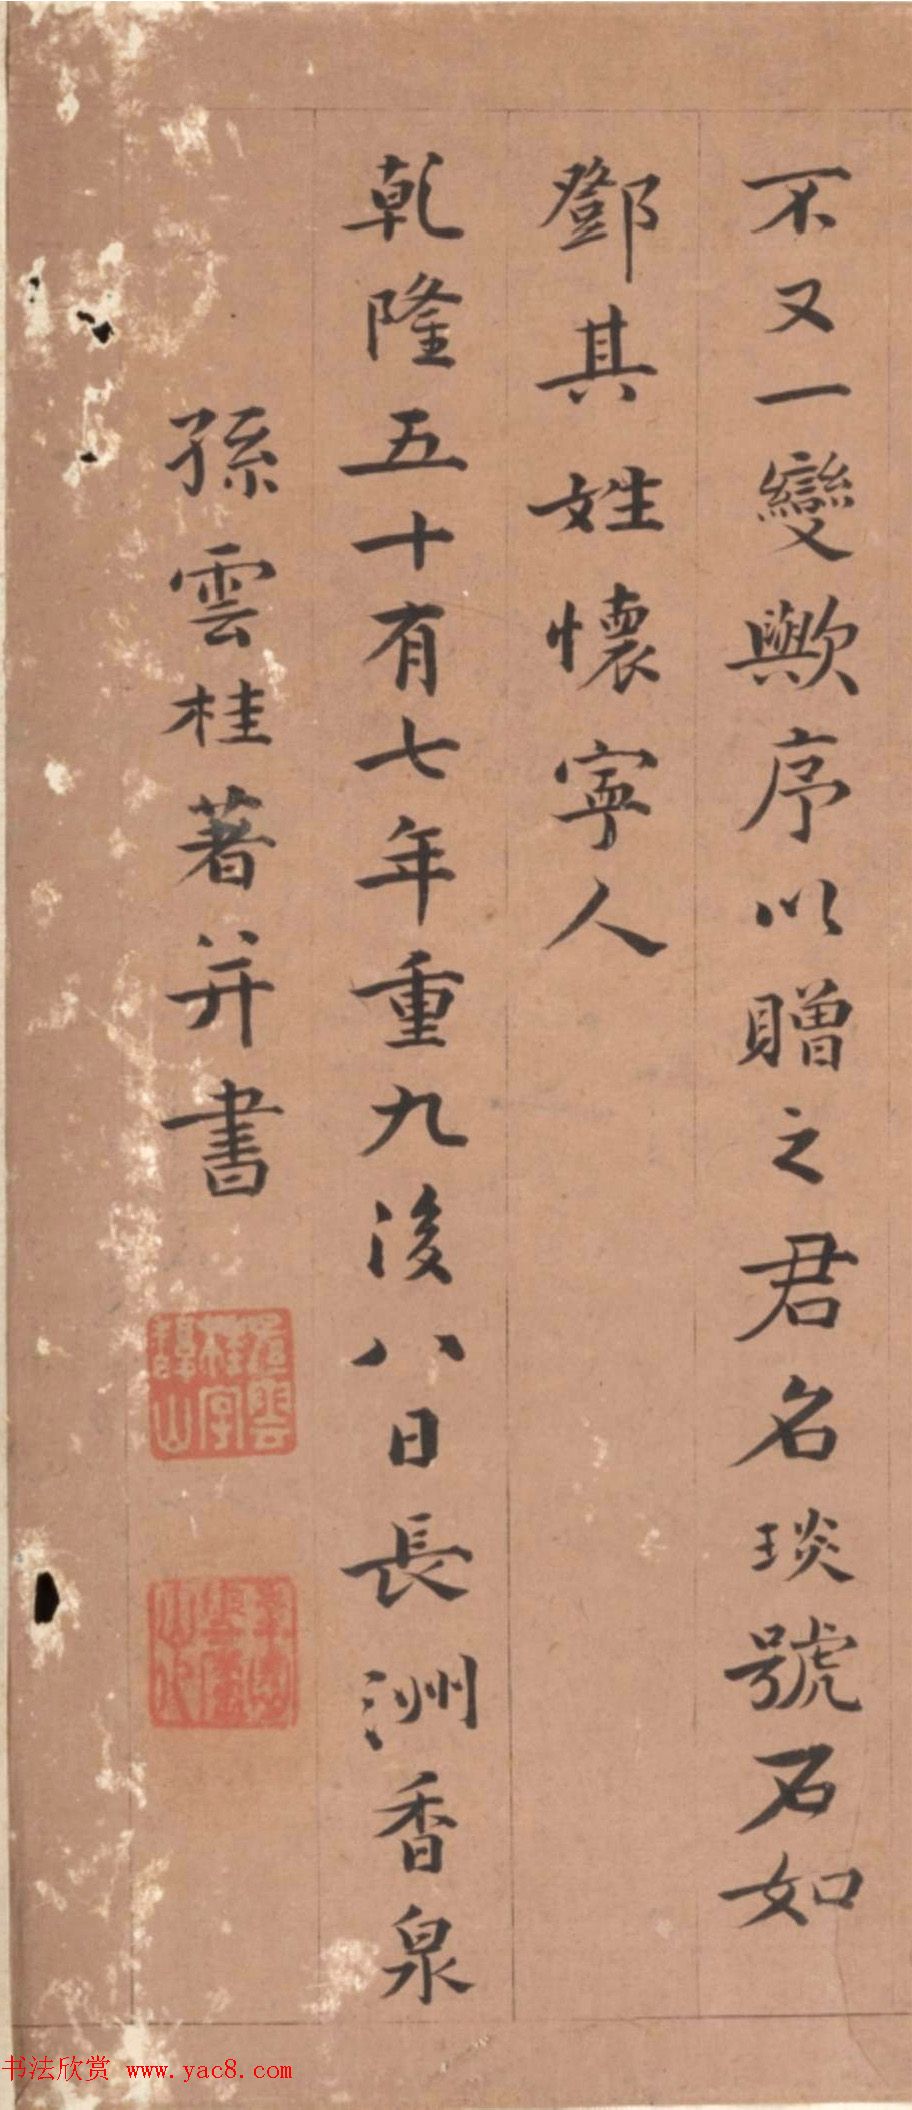 不又一變歟序以贈之君名琰號石如
鄧其姓懷寧人
乾隆五十有七年重九後八日長洲香泉
孫雲桂著并書
孫雲桂字韓山
书法欣赏 www.yac8.com